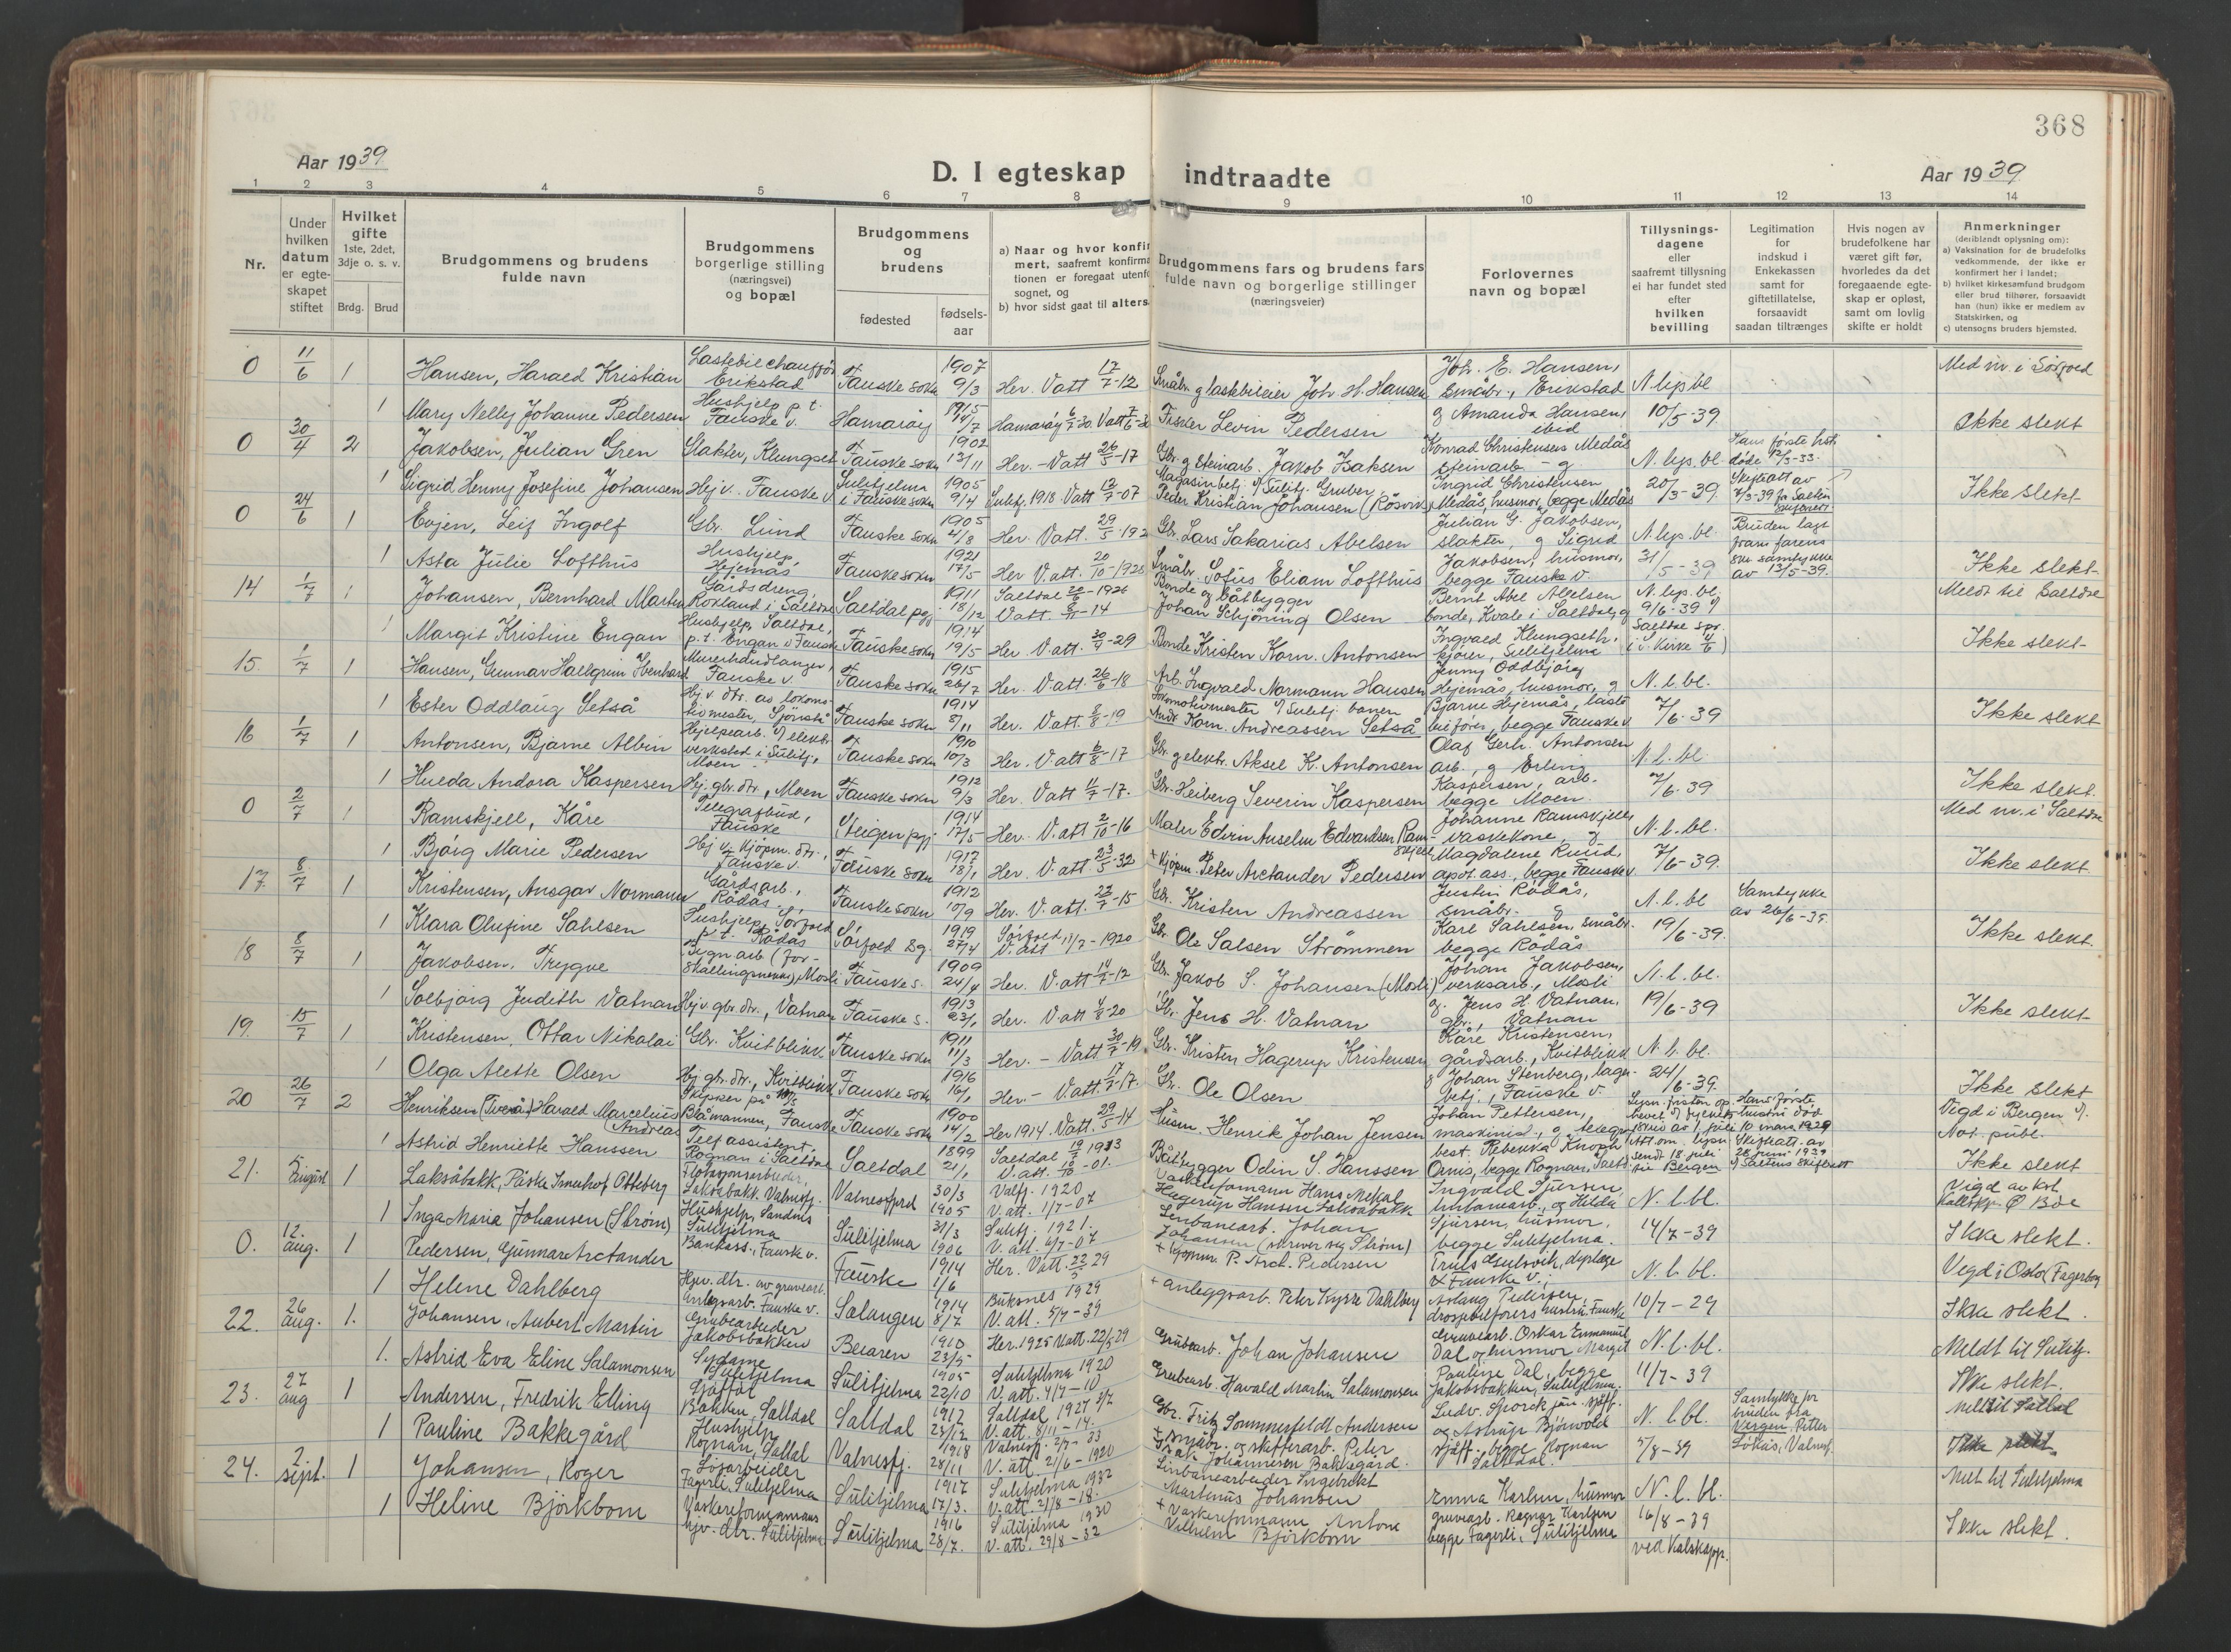 368
Aar 1939.
D. I egteskap indtraadte
Aar 1939
1 2 3 4 5 6 7 8 9 10 11 12 13 14
Nr.
Under hvilken datum er egteskapet stiftet
Hvilket gifte
1ste, 2det, 3dje o. s. v.
Brdg. Brud
Brudgommens og brudens fulde navn
Brudgommens borgerlige stilling (næringsvei) og bopæl
Brudgommens og brudens
fødested
fødsels-aar
a) Naar og hvor konfir
mert, saafremt konfirma
tionen er foregaat utenfo
sognet, og
b) hvor sidst gaat til alters
Brudgommens fars og brudens fars
fulde navn og borgerlige stillinger
(næringsveier)
Forlovernes
navn og bopæl
Tillysnings-
dagene
eller
saafremt tillysning
ei har fundet sted
efter
hvilken
bevilling
Legitimation
for
indskud i
Enkekassen
samt for
giftetillatelse,
forsaavidt
saadan tiltrænges
Hvis nogen av
brudefolkene har
været gift før,
hvorledes da det
foregaaende egte-
skap er opløst,
samt om lovlig
skifte er holdt
Anmerkninger
(deriblandt oplysning om):
a) Vaksination for de brudefolks
vedkommende, der ikke er
konfirmert her i landet;
b) hvilket kirkesamfund brudgom
eller brud tilhører, forsaavidt
han (hun) ikke er medlem av
Statskirken, og
c) utensogns bruders hjemsted.
0 11/6 1 Hansen, Harald Kristian Lastebilchauffør Erikstad Fauske sokn 1907 9/3 Her. Vatt 17/7-12 Småbr. g lastebileier Joh. H. Hansen Joh. E. Hansen, småbr., Erikstad N. lysp. bl Med nr. i Sørfold
1 Mary Nelly Johanne Pedersen Hushjelp p.t. Fauske v. Hamarøy 1915 14/7 Fisker Levin Pedersen g Amanda Hansen, ibid 10/5-39. Ikke slekt
0 30/4 2 Jakobsen, Julian Gren Slakter, Klungset Fauske sokn 1902 13/11 Her. - Vatt 26/5-17 Gbr. g Steinarb. Jakob Isaksen Konrad Christensen Medås steinarb. - g N. lys. bl. Hans første hstr døde 12/3-33.
1 Sigrid Henny Josefine Johansen Hej v. Fauske v Sulitjelma i Fauske sokn 1905 9/4 Sulitj. 1918. Vatt 13/7-07 Magasinbetj. v/ Sulitj. Gruber Peder Kristian Johansen (Røsvik) Ingrid Christensen Medås, husmor, begge Medås 20/3-39. Skifteatt av 7/3-39 fr Salten Ikke slekt
0 24/6 1 Evjen, Leif Ingolf Gbr. Lund Fauske sokn 1905 4/8 Her. Vatt. 29/5-192 Gbr. Lars Sakarias Abelsen Julian G. Jakobsen, slakter, g Sigrid N. lys. bl. Bruden lagt fram farens
1 Asta Julie Lofthus Hushjelp Hjemås Fauske sokn 1921 17/5 Her V.att. 20/10-1928 Småbr. Sofus Eliam Lofthus Jakobsen, husmor, begge Fauske v. 31/5-39 skr. samtykke av 13/5-39. Ikke slekt
14 1/7 1 Johansen, Bernhard Marten Gårdsdreng, Rokland i Saltdal Saltdal pgj. 1911 18/12 Saltdal 20/6-1926 V.att. 8/11-14 Bonde og båtbygger Johan Schjöning Olsen Bernt Abel Abelsen bonde, Kvale i Saltdal, g N. lys. bl. 9/6-39 v/ Meldt til Saltdal
1 Margit Kristine Engan Hushjelp, Saltdal, p.t. Engan i Fauske Fauske sokn 1914 19/5 Her. V.att. 30/4-29 Bonde Kristen Korn. Antonsen Ingvald Klungseth, kjører, Sulitjelma Saltdal spr. i S. kirke 4/6) Ikke slekt
15. 1/7 1 Hansen, Gunnar Hallgrim Ihenhard Murerhåndlanger, Fauske v. Fauske sokn 1915 26/7 Her. V.att. 26/6-18 Arb. Ingvald Normann Hansen Jenny Oddbjørg Hjemås, husmor, g N. l. bl.
1 Ester Oddlaug Setså Hej v. dtr. av lokomotivmester, Sjönstå Fauske sokn 1914 8/11 Her. V.att. 8/8-19 Lokomotivmester v/ Sulitj. banen Andr. Korn. Andreassen Setså Bjarne Hjemås, lastebilfører, begge Fauske v 7/6-39 Ikke slekt
16 1/7 1 Antonsen, Bjarne Albin Hjelpearb. v/ elektr. verksted i Sulitj., Moen Fauske sokn 1910 10/3 Her. V.att 6/8-17 Gbr. g elektr. Aksel K. Antonsen Olaf Gerh. Antonsen arb., g Erling N. l. bl
1 Hulda Andora Kaspersen Hej. gbr. dtr., Moen Fauske sokn 1912 9/3 Her. Vatt 11/7-17. Gbr. Heiberg Severin Kaspersen Kaspersen, arb. begge Moen. 7/6-39 Ikke slekt.
0 2/7 1 Ramskjell, Kåre Telegrafbud, Fauske Steigen pgj. 1914 17/5 Her. V.att 2/10-16 Maler Edvin Anselm Edvardsen Ramskjell Johanne Ramskjell vaskekone, g N. l. bl. Med nr. i Saltdal
1 Bjørg Marie Pedersen Hej v. kjøpm. dtr., Fauske v. Fauske sokn 1917 18/1 Her. V.att 23/5-32 + Kjøpm. Peter Arctander Pedersen Magdalene Ruud, apot. ass., begge Fauske v. 7/6-39. Ikke slekt
17. 8/7 1 Kristensen, Ansgar Normann Gårdsarb., Rødås Fauske sokn 1912 10/9 Her. V.att. 23/7-15 Gbr. Kristen Andreassen Justin Rødås, småbr. g N. l. bl Samtykke av 26/6-39.
1 Klara Olufine Sahlsen Hushjelp, Sørfold p.t. Rødås Sørfold sg. 1919 27/4 Sørfold V.att 13/7-1920 Gbr. Ole Salsen Strømmen Karl Sahlsen, småbr. begge Rødås 19/6-39. Ikke slekt.
18 8/7 1 Jakobsen, Trygve Bygn arb (forskallingsnekker), Mosli Fauske s. 1909 24/4 Her. V.att 14/7-12 Gbr. Jakob S. Johansen (Mosli) Johan Jakobsen, verksarb., Mosli N. l. bl.
1 Solbjørg Judith Vatnan Hjv gbr. dtr., Vatnan Fauske s. 1913 23/1 Her. V att 4/8-20 Gbr. Jens H. Vatnan g. Jens H. Vatnan, gbr., Vatnan 19/6-39 Ikke slekt
19. 15/7 1 Kristensen, Ottar Nikolai Gbr. Kvitblikk Fauske sokn 1911 11/3 Her. - Vatt 30/7-19 Gbr. Kristen Hagerup Kristensen Kåre Kristensen, gårdsarb., Kvitblikk N. l. bl.
1 Olga Alette Olsen Hej. gbr. dtr., Kvitblikk Fauske sokn 1916 16/1 Her. - V.att. 17/7-17. Gbr. Ole Olsen g Johan Stenberg, lagerbetj., Fauske v. 24/6-39. Ikke slekt
20 26/7 2 Henriksen (Tverå) Harald Marcelius Andreas Skipper på M/S Blåmannen, Fauske Fauske sokn 1900 14/2 Her 1914. Vatt. 29/5-14 Husm. Henrik Johan Jensen Johan Pettersen, maskinist, g telegr. Hans første hustru død 10 mars 1929 Vigd i Bergen v/ Not. publ.
1 Astrid Henriette Hanssen Telf assistent, Rognan i Saltdal Saltdal 1899 21/1 Saltdal 19/7 1913 V.att. 18/10-01. Båtbygger Odin S. Hanssen best. Rebekka Knoph Arnis, begge Rognan, Saltd. sendt 18 juli til Bergen Skifteatt. av 28 juni 1939 v/ Saltens skifterett Ikke slekt
21. 5 august 1 Laksåbakk, Påske Imerhof Otteberg Flotasjonsarbeider, Laksåbakk Valnesfj. Valnesfjord 30/3 1905 Valfj. 1920 V.att. 1/7-07 Vaskeformann Hans Mekal Hagerup Hansen Laksåbakk Ingvald Sjursen linbanearb., og Hilda N. l. bl. Vigd av kst. kallskp. Ø Bøe
1 Inga Maria Johansen (Strøm) Hushjelp, Sandnes Sulitjelma Sulitjelma 31/3 1906 Sulitj. 1921. V. att. 4/7-07 Linbanearb. Johan Johansen (skriver seg Strøm) Sjursen, husmor, begge Sulitjelma. 14/7-39 Ikke slekt.
0. 12. aug. 1 Pedersen, Gunnar Arctander Bankass., Fauske v. Fauske 1914 1/6 Her. Vatt. 22/5 29 + Kjøpm. P. Arct. Pedersen Truls Gulsvik, disp. N. l. bl. Vigd i Oslo (Fagerborg
1 Helene Dahlberg Hjv. dtr. av gruvearb. anlegsarb. Fauske v. Salangen 1914 8/7 Buksnes 1929 V. att. 5/7-39 + anleggsarb. Peter Kysse Dahlberg Aslaug Pedersen, drosjebilførers hustru, Fauske 10/7-29 Ikke slekt.
22. 26 aug. 1. Johansen, Aubert Martin Grubearbeider Jakobsbakken Beiaren 1910 23/5 Her. 1925 Vatt. 22/5 29 Grubearb. Johan Johansen Gruvearb. Oskar Enmanuel Dal og husmor Margit N. l. bl. Meldt til Sulitj.
1. Astrid Eva Eline Salamonsen Sydame Sulitjelma Sulitjelma 1905 22/10 Sulitjelma 1920 V. att. 4/7-10 Grubearb. Havald Martin Salamonsen Pauline Dal, begge Jakobsbakken, Sulitjelma. 11/7-39 Ikke slekt.
23. 27 aug 1 Andersen, Fredrik Elling Sjåffør Bakken, Saltdal Saltdal 1912 23/12 Saltdal 1927 V. att. 8/11-14. Gbr. Fritz Sommerfeldt Andersen Ludv. Storckjan sjåff. og Astrup Bjørnvold N. l. bl. Samtykke for bruden fra Vergen, Petter Løkås, Valnesf.
1 Pauline Bakkegård Hushjelp Rognan, Saltdal Valnesfj. 1918 28/11 Valnesfj. 2/7-33 V. att. 21/6-1920 + småbr. og skifferarb. Peter Johannesen Bakkegård. sjåff. begge Rognan Saltdal. 5/8-39 Ikke slekt
24. 2. sept. 1 Johansen, Roger Løsarbeider Fagerli, Sulitjelma Sulitjelma 1917 17/3. Sulitjelma 1932 V. att. 21/8-18. Linbanearbeider Ingebrikt Martinus Johansen Emma Karlsen, husmor N. l. bl. Meldt til Sulitjelma
1 Heline Björkbom Vaskereformanns hjv. dtr. Sulitjelma Sulitjelma 1916 28/7. Sulitjelma 1930 V. att. 29/8-32 + Vaskeformann Antone Vilhelm Björkbom gruvearb. Ragnar Karlsen begge Fagerli, Sulitjelma 16/8-39 ved Kalskapp. Ikke slekt.